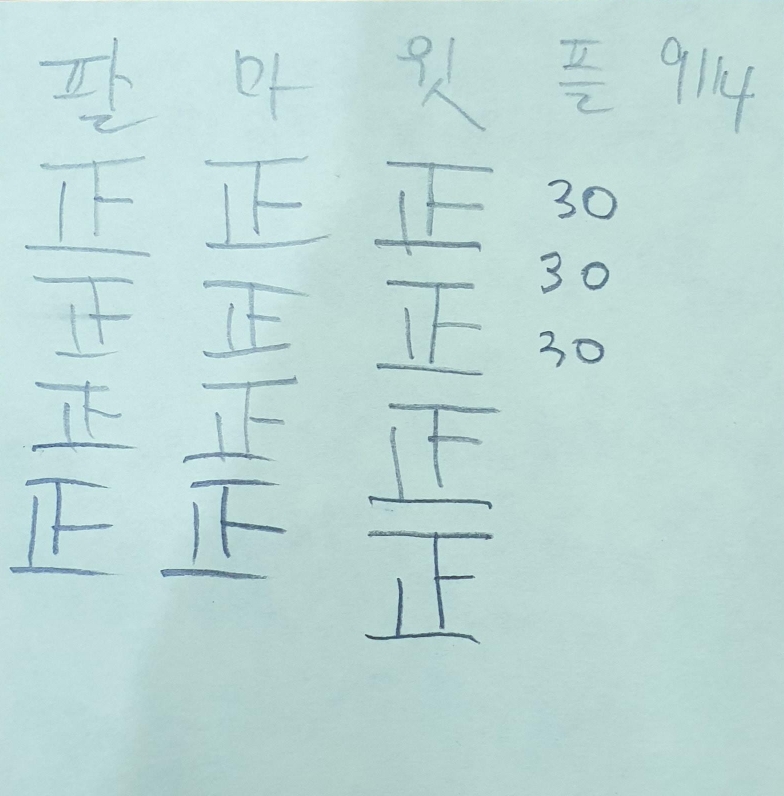 팔 마 윗 플 9/14
正 正 正 30
正 正 正 30
正 正 正 30
正 正 正